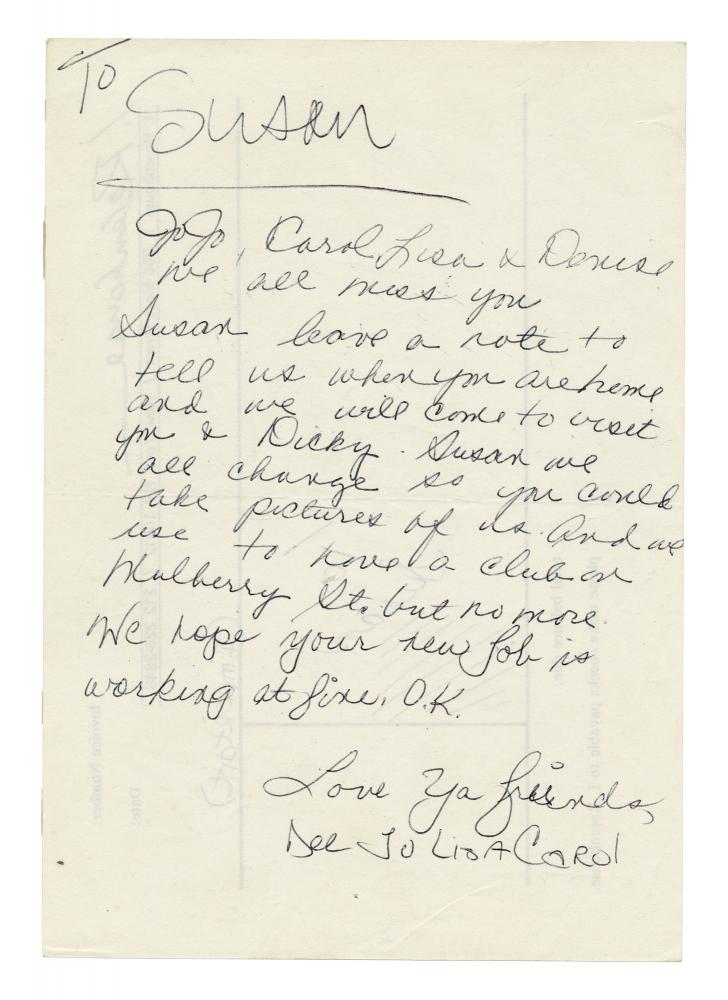 To
Susan
JoJo, Carol Lisa & Denise
we all miss you
Susan leave a note to
tell us when you are home
and we will come to visit
you & Dicky. Susan we
all change so you could
take pictures of us. And we
use to have a club on
Mulberry St. but no more
We hope your new Job is
working at fine. O.K.
Love Ya friends,
Dee JO LISA CAROl
Invoice Number:
Date: